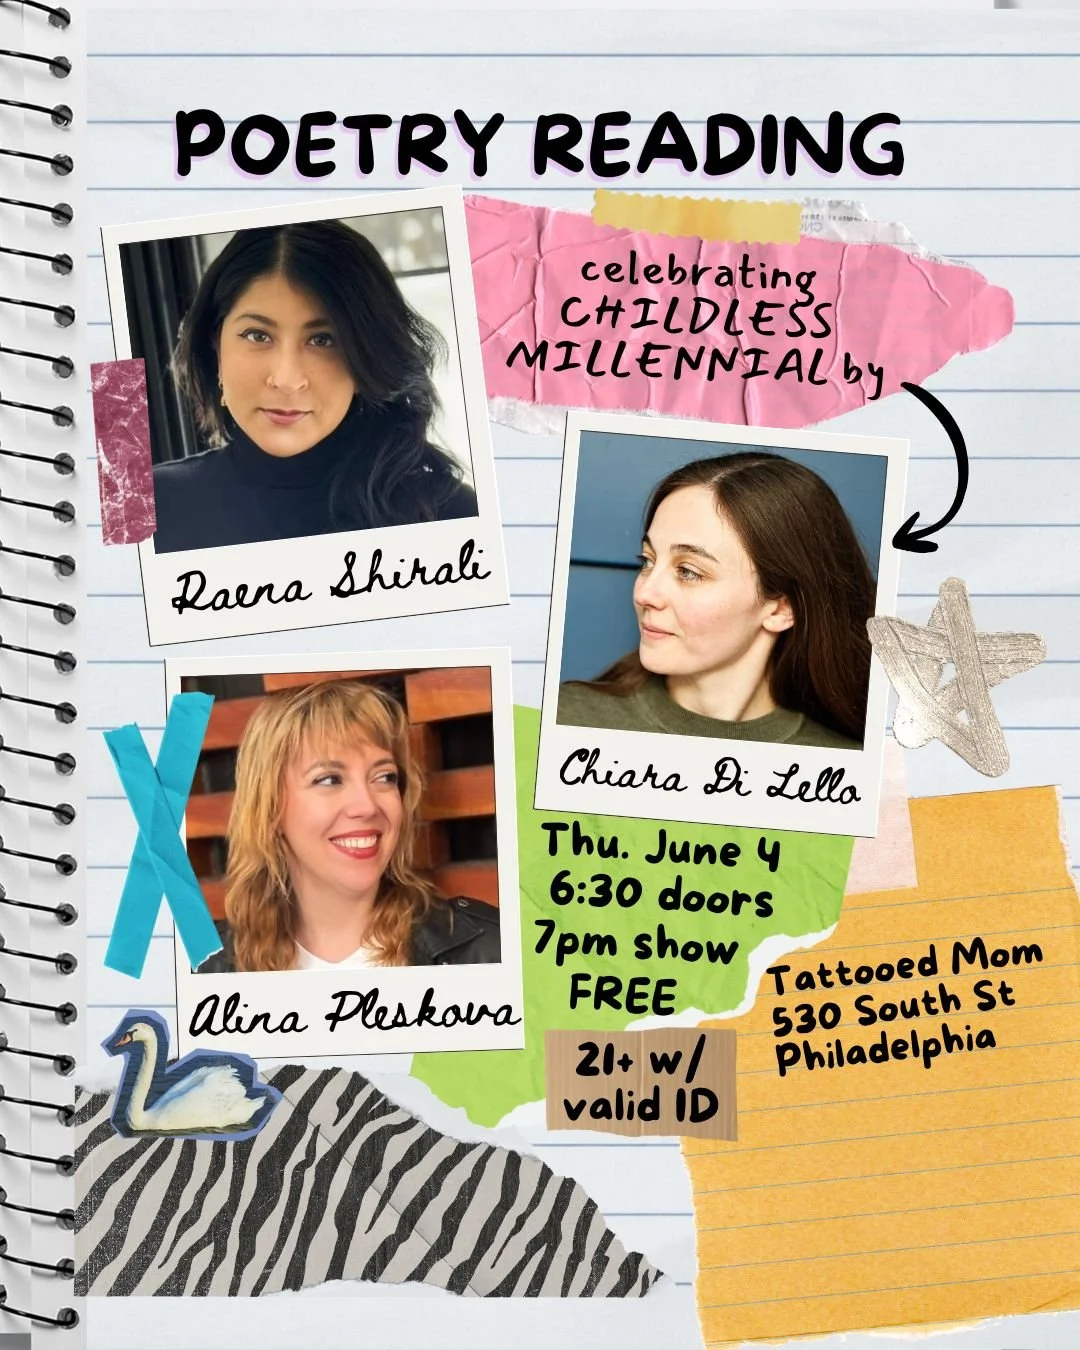 POETRY READING
celebrating
CHILDLESS
MILLENNIAL by
Raena Shirali
Chiara Di Lello
Alina Pleskova
Thu. June 4
6:30 doors
7pm show
FREE
21+ w/
valid ID
Tattooed Mom
530 South St
Philadelphia